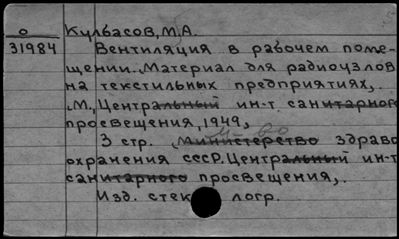 о Кулбасов, М.А.
31984 Вентиляция в рабочем поме-
щении. Материал для радиоузлов
на текстильных предприятиях,.
М., Центральный ин-т санитарного
просвещения, 1949,
3 стр. Министерство здраво
М-во
охранения СССР. Центральный ин-т
санитарного просвещения,.
Изд. стек логр.